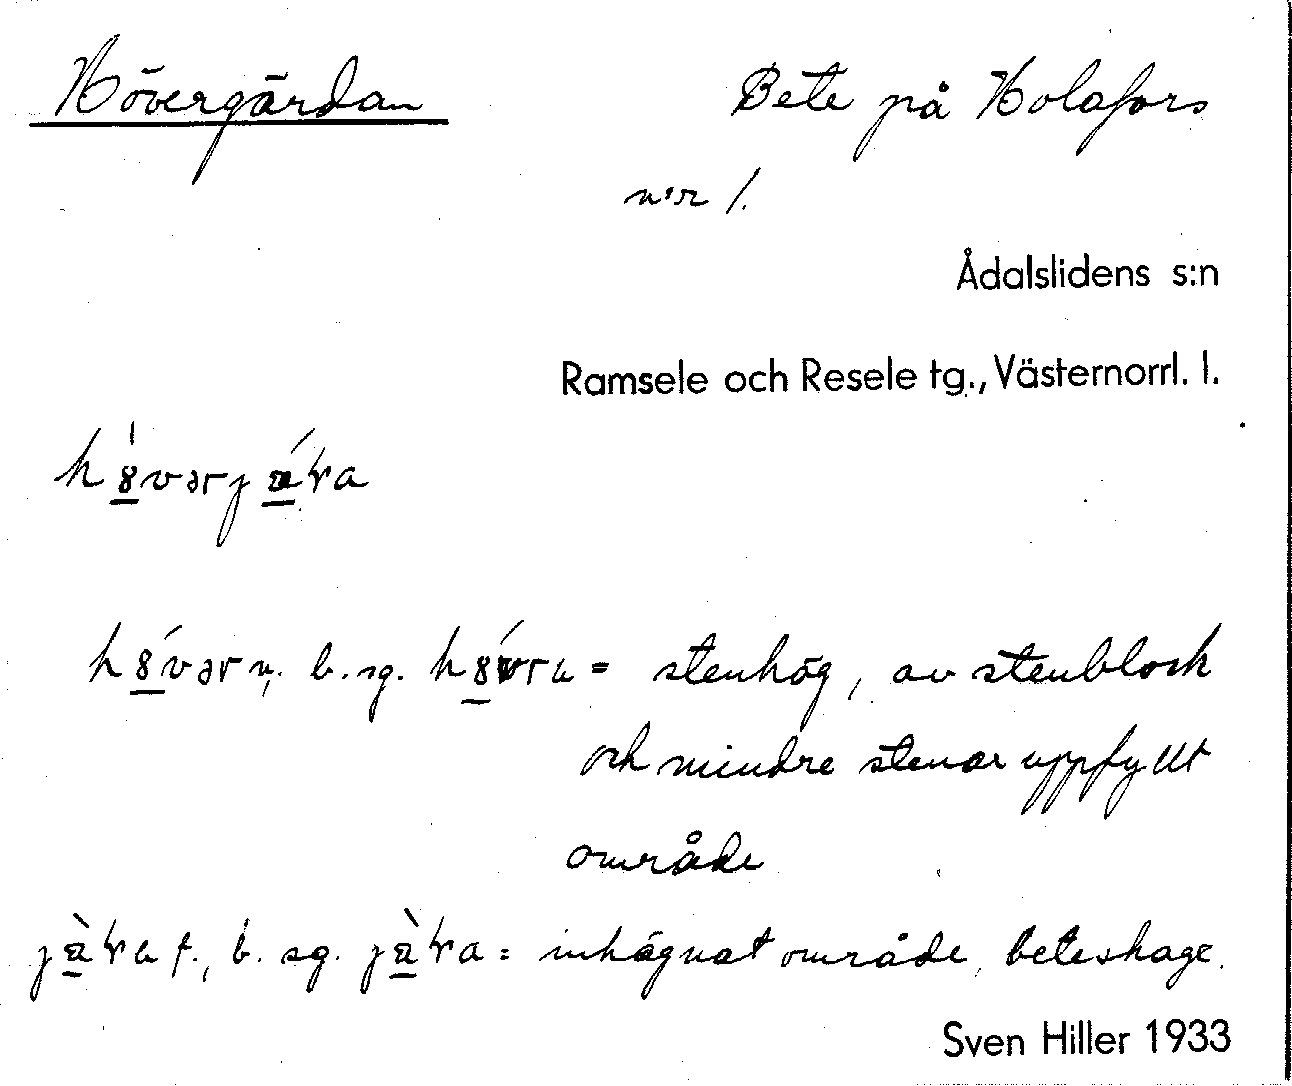 Hövergärdan Bete på Holafors
n:r 1.
Ådalslidens s:n
Ramsele och Resele tg., Västernorrl. l.
b. sg. = stenhög, av stenblock
och mindre stenar uppfyllt
område
f., b. sg. = inhägnat område, beteshage.
Sven Hiller 1933